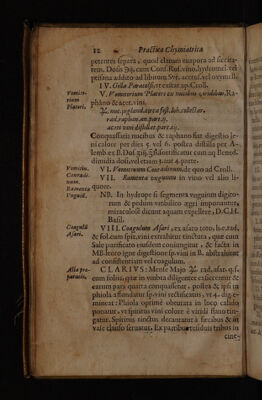 12 Practica Chymiatrica
petentes separa : quod clarum evapora ad siccita-
tem. Dosis ℈ij. cum Conf. Ros. vino, hydromel. vel
ptisana addito ad libitum Syr. acetos. vel oxymelle.
IV. Gilla Paracelsi, ut extat ap. Croll.
Vomito-
rium
Plateri.
V. Vomitorium Plateri ex nucibus viridibus, Ra-
phano & acet. vini.
nuc. jugland. circa fest. Joh. collectar.
rad. raphan. an. part.
aceti vini distillat. part.
Conquassatis nucibus & raphano fiat digestio le-
ni calore per dies 5. vel 6. postea distilla per A-
lemb. ex B. Dos.
dimidia dosi, vel etiam 3. aut 4. parte.
Vomitiv.
Conradi-
num.
VI. Vomitivum Conradinum, de quo ad Croll.
Ramenta
Unguiũ.
VII. Ramenta unguium in vino vel alio li-
quore.
NB. In hydrope si segmenta unguium digito-
rum & pedum umbilico ægri imponantur,
miraculose dicunt aquam expellere, D.C.H.
Basil.
Coagulũ
Asari.
VIII. Coagulum Asari, ex asaro toto, h.e. rad.
& fol. cum spir. vini extrahitur tinctura, quæ cum
Sale purificato ejusdem conjungitur, & facta in
MB. leoto igne digestione sp. vini in B. abstrahitur
ad consistentiam vel coagulum.
Alia præ-
paratio.
CLARIUS: Mense Majo rad. asar. q. s.
cum foliis, quæ in umbra diligenter exsiccentur &
earum pars quarta conquassetur, postea & spß in
phiola affundatur sp. vini rectificatus, ut 4. dig. e-
mineat: Phiola optime obturata in loco calido
ponatur, ut spiritus vini colore è viridi flavo tin-
gatur. Spiritus tinctus decantatur à fæcibus & in
vase clauso servatur. Ex partibus residuis tribus in
cine-